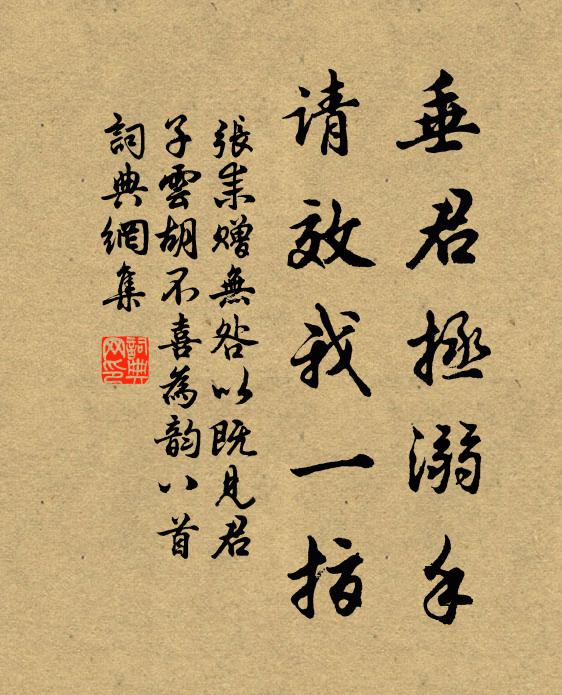 垂君拯溺手
请效我一指
張耒贈無咎以既見君
子雲胡不喜為韵八首
詞典網集
詞典
网印